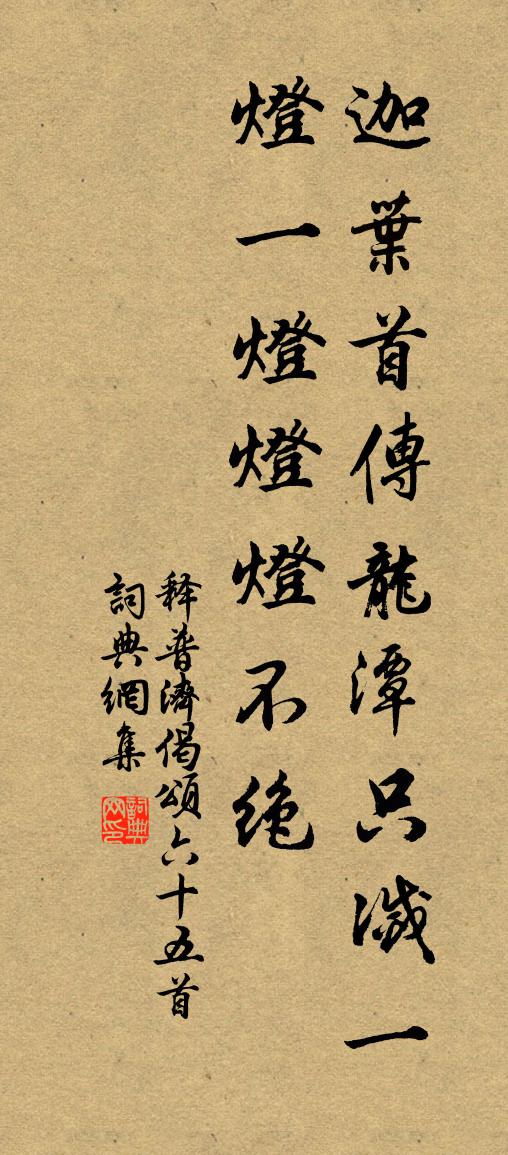 迦葉首傳龍潭只滅一
燈一燈燈燈不絶
释普濟偈頌六十五首
詞典網集
詞典网印